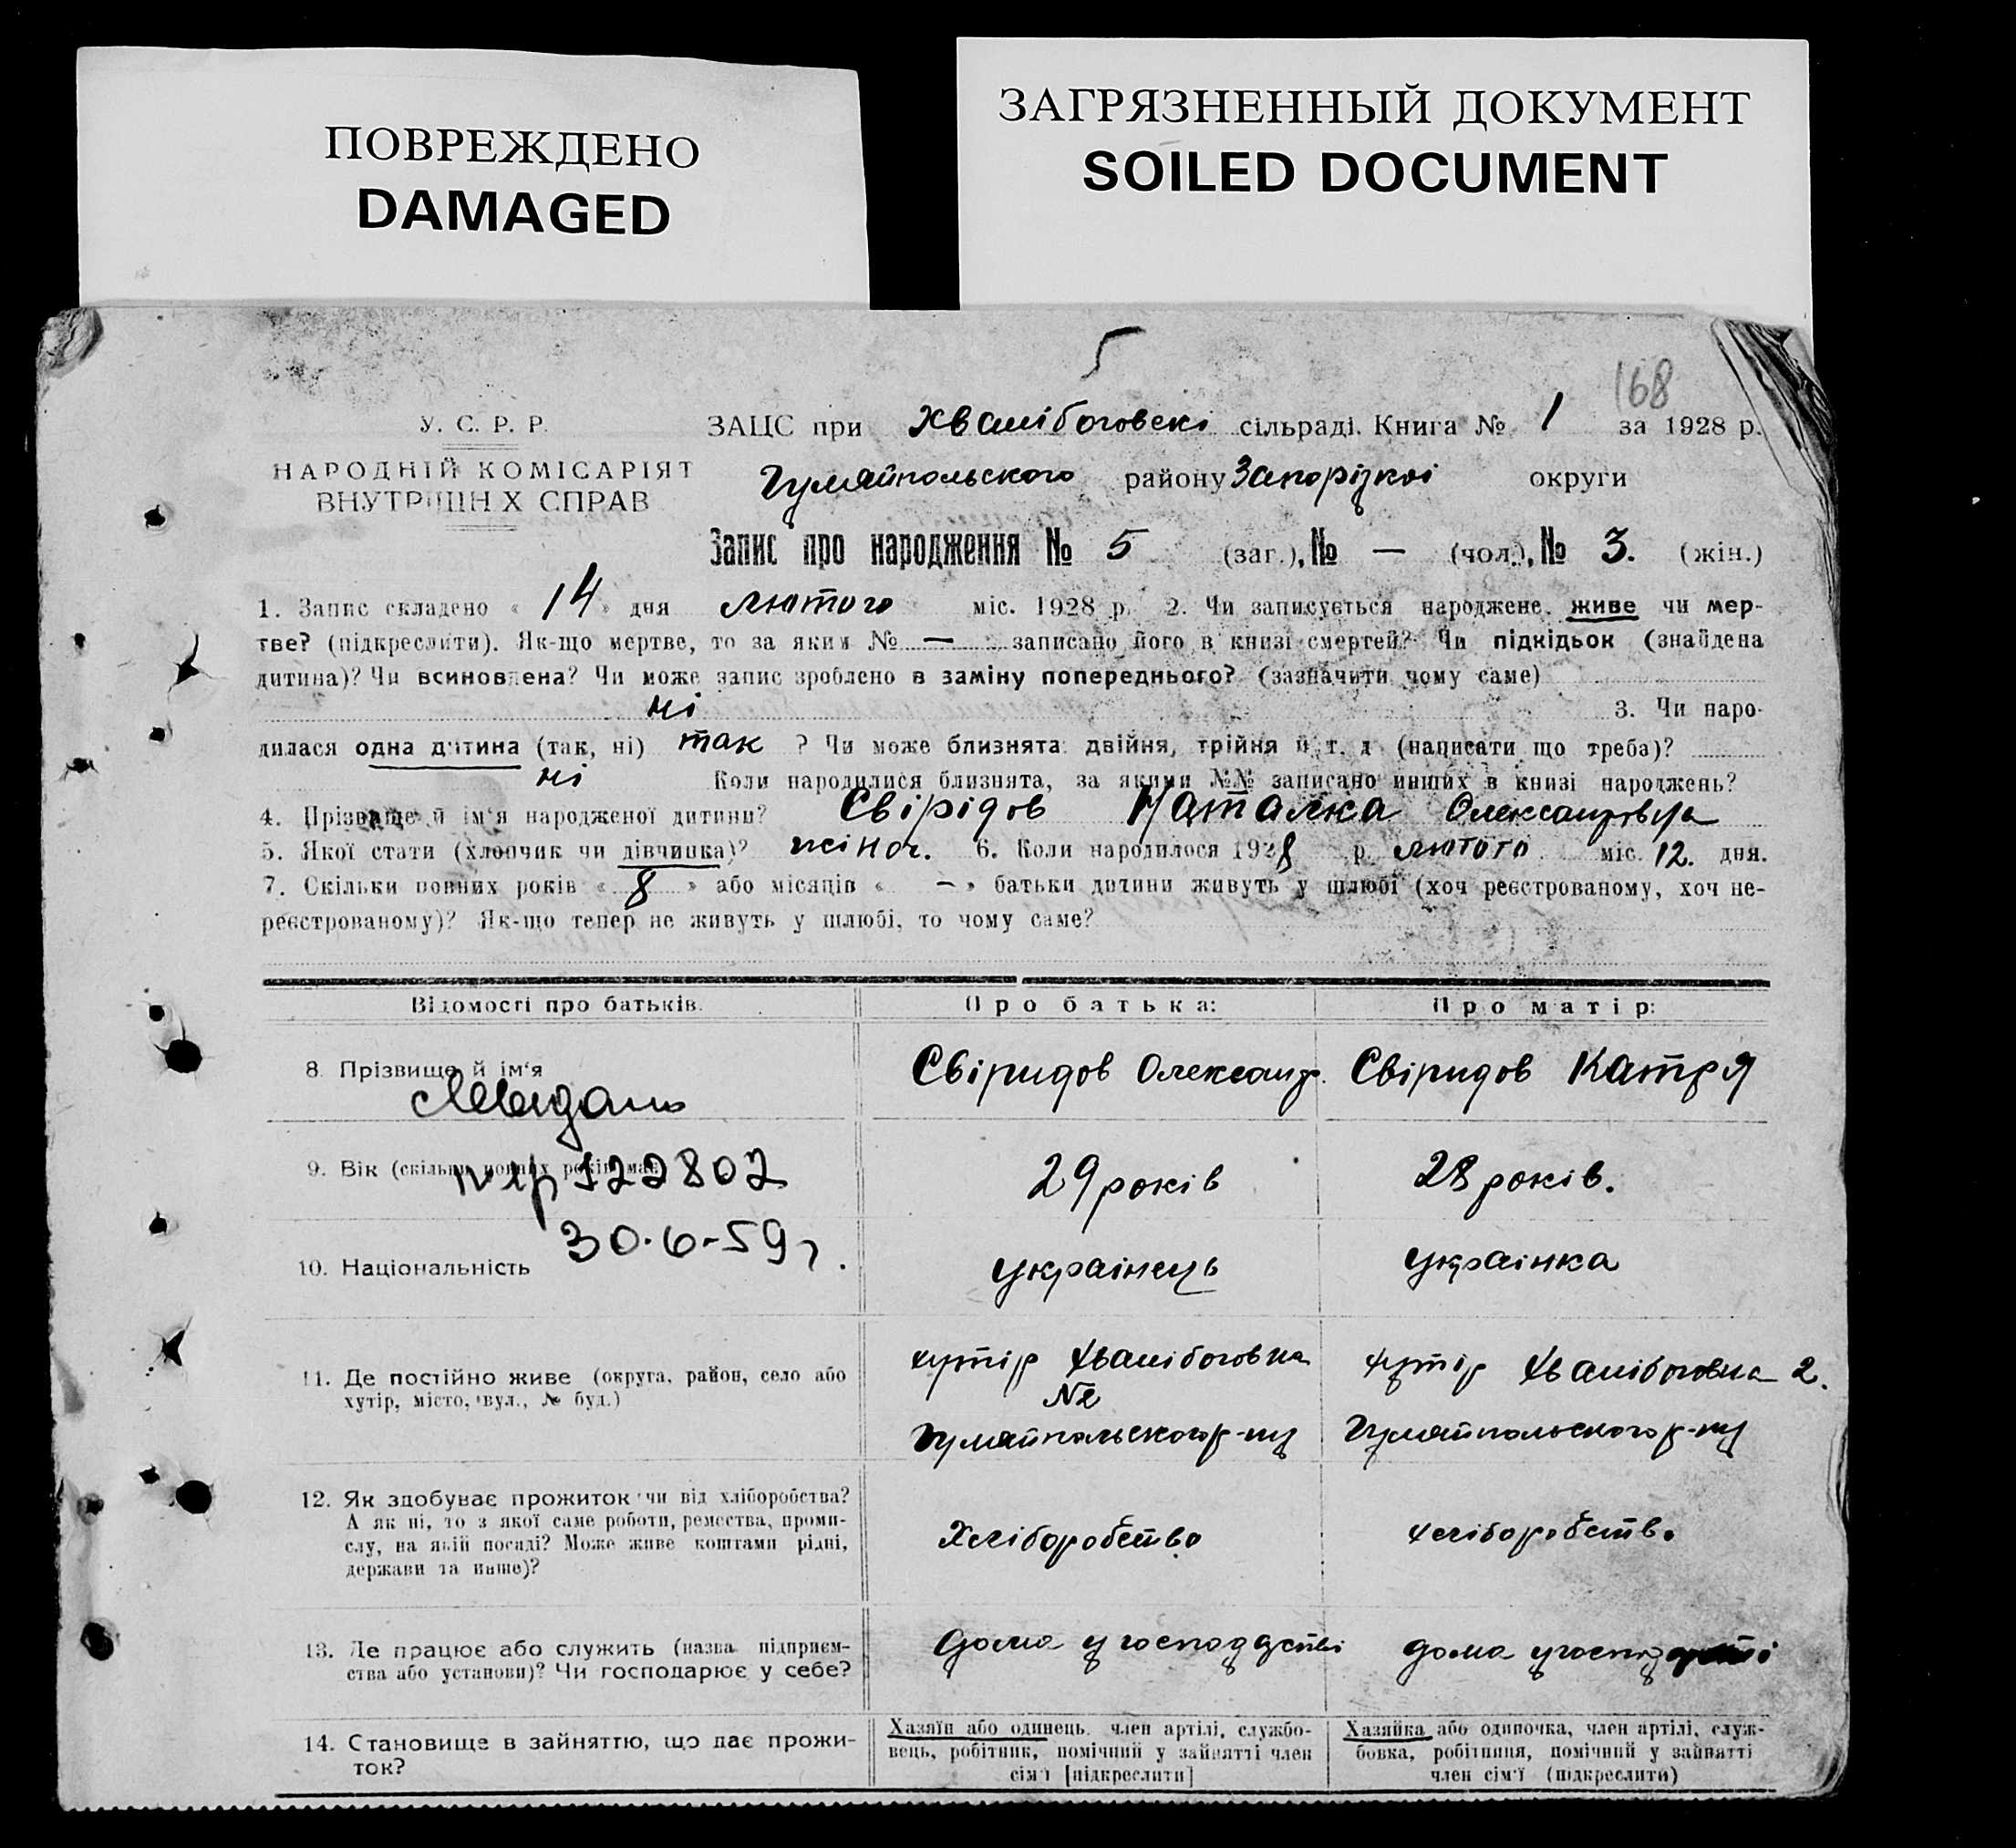 ПОВРЕЖДЕНО
DAMAGED
ЗАГРЯЗНЕННЫЙ ДОКУМЕНТ
SOILED DOCUMENT
5
168
У. С. Р. Р.
НАРОДНІЙ КОМІСАРІЯТ
ВНУТРІШНІХ СПРАВ
ЗАЦС при Хвалібоговскі сільраді. Книга № 1 за 1928 р.
Гуляйпольского району Запорізкоі округи
Запис про народження № 5 (заг.), № — (чол.), № 3. (жін.)
1. Запис складено « 14 » дня лютого міс. 1928 р. 2. Чи записується народжене живе чи мер-
тве? (підкреслити). Як-що мертве, то за яким № — записано його в книзі смертей? Чи підкідьок (знайдена
дитина)? Чи всиновлена? Чи може запис зроблено в заміну попереднього? (зазначити чому саме)
ні 3. Чи наро-
дилася одна дитина (так, ні) так ? Чи може близнята: двійня, трійня й т. д. (написати що треба)?
ні Коли народилися близнята, за якими №№ записано инших в книзі народжень?
4. Прізвище й ім'я народженої дитини? Свірідов Наталка Олександровна
5. Якої стати (хлопчик чи дівчинка)? жіноч. 6. Коли народилося 1928 р. лютого міс. 12. дня.
7. Скільки повних років « 8 » або місяців « — » батьки дитини живуть у шлюбі (хоч реєстрованому, хоч не-
реєстрованому)? Як-що тепер не живуть у шлюбі, то чому саме?
Відомості про батьків. Про батька: Про матір:
8. Прізвище й ім'я Свіридов Олександр. Свіридов Катря
9. Вік (скільки повних років має) 29 років 28 років.
122802
30.6-59г.
10. Національність украінець украінка
11. Де постійно живе (округа, район, село або
хутір, місто, вул., № буд.)
хутір Хвалібоговка
№2
Гуляйпольского р-ну
хутір Хвалібоговка 2.
Гуляйпольского р-ну
12. Як здобуває прожиток чи від хліборобства?
А як ні, то з якої саме роботи, ремества, проми-
слу, на якій посаді? Може живе коштами рідні,
держави та инше)?
Хліборобство
хліборобство
13. Де працює або служить (назва підприєм-
ства або установи)? Чи господарює у себе?
дома у господарстві
дома у господарстві
14. Становище в зайняттю, що дає прожи-
ток?
Хазяїн або одинець, член артілі, службо-
вець, робітник, помічний у зайнятті член
сім'ї [підкреслити]
Хазяйка або одиночка, член артілі, служ-
бовка, робітниця, помічний у зайнятті
член сім'ї (підкреслити)